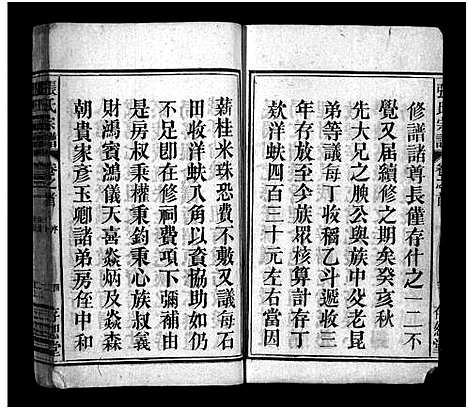 修譜諸尊長僅存什之一二不
覺又屆續修之期矣癸亥秋
先大兄之腴公與族中殳老昆
弟等議每丁收稻乙斗遞收三
年至乙丑歲眾核算計存丁
欵洋蚨四百三十元左右當因
薪桂米珠恐費不敷又議每石
田收洋蚨八角以資協助如仍
不足卽在修祠費項下彌補由
是房叔秉權秉鈞秉心族叔義
財鴻賓鴻儀天喜焱炳及焱森
朝貴家彥玉卿諸弟房侄中和
張氏宗譜
卷之首